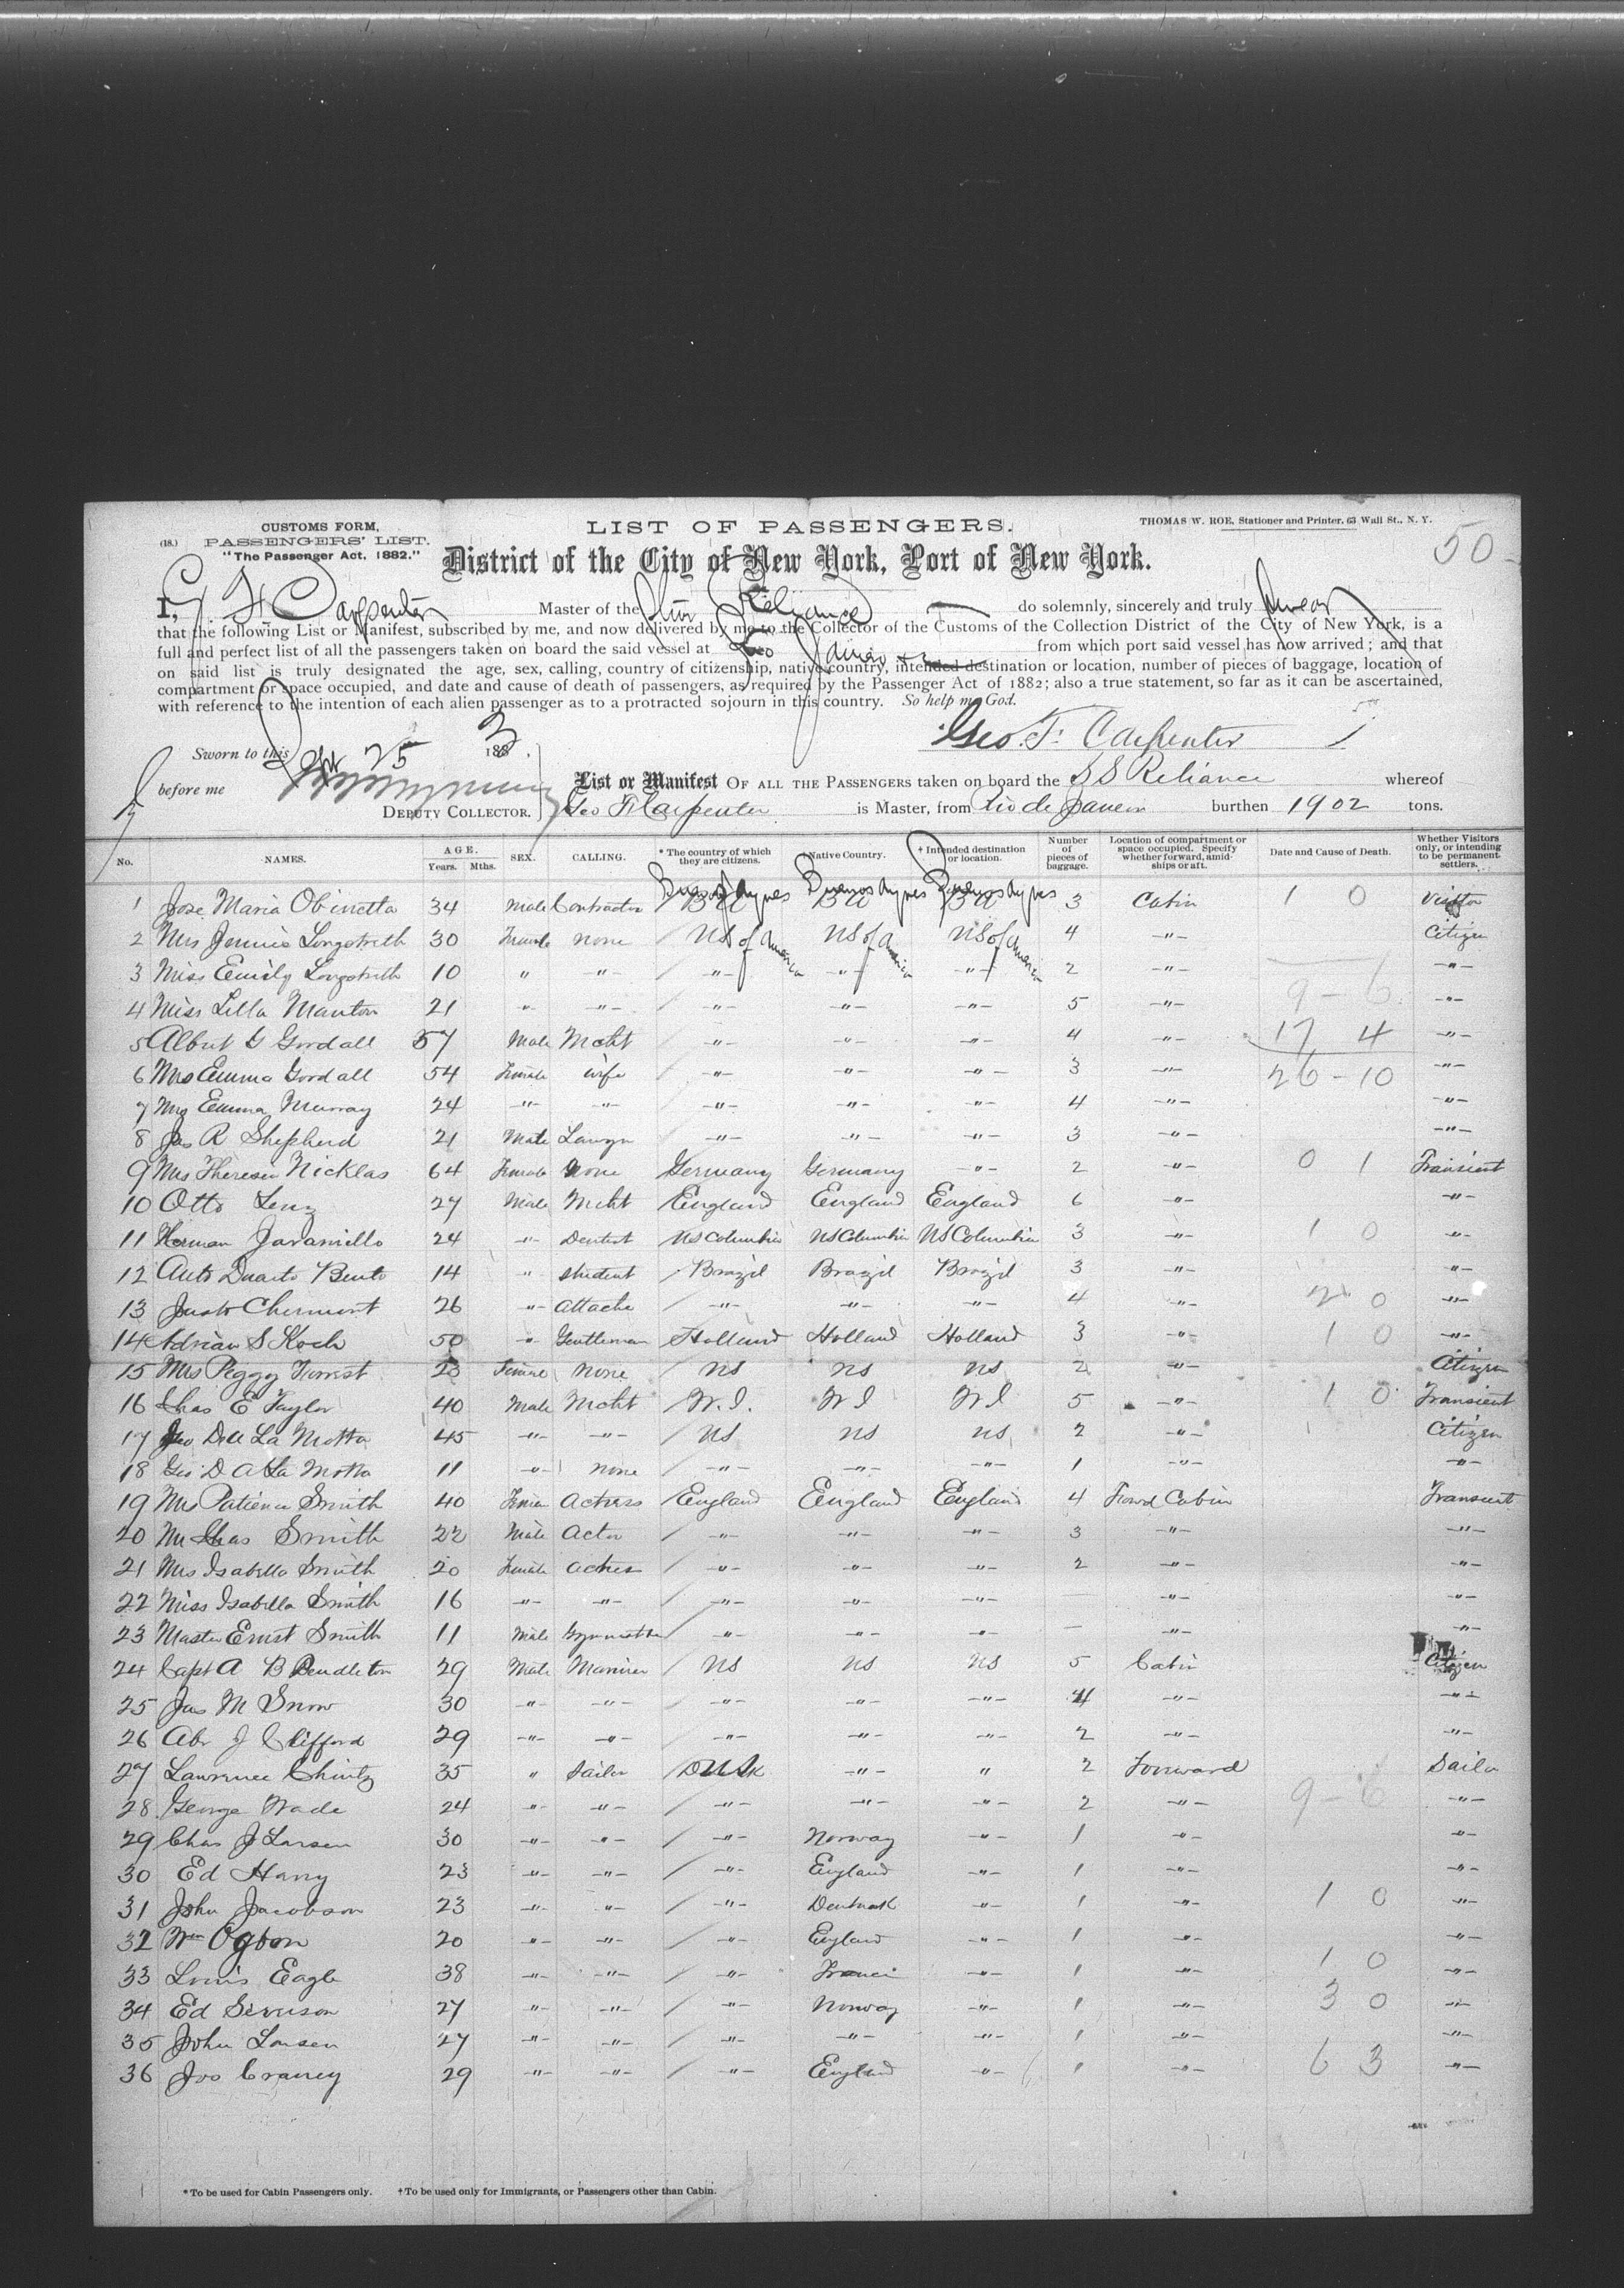 CUSTOMS FORM,
(18.) PASSENGERS' LIST.
"The Passenger Act, 1882."
LIST OF PASSENGERS.
THOMAS W. ROE, Stationer and Printer, 63 Wall St., N. Y.
50
District of the City of New York, Port of New York.
I, G F Carpenter Master of the Str Reliance do solemnly, sincerely and truly swear
that the following List or Manifest, subscribed by me, and now delivered by me to the Collector of the Customs of the Collection District of the City of New York, is a
full and perfect list of all the passengers taken on board the said vessel at Rio Janeiro from which port said vessel has now arrived; and that
on said list is truly designated the age, sex, calling, country of citizenship, native country, intended destination or location, number of pieces of baggage, location of
compartment or space occupied, and date and cause of death of passengers, as required by the Passenger Act of 1882; also a true statement, so far as it can be ascertained,
with reference to the intention of each alien passenger as to a protracted sojourn in this country. So help me God.
Geo. F. Carpenter
Sworn to this 25 1883
before me
DEPUTY COLLECTOR.
List or Manifest OF ALL THE PASSENGERS taken on board the SS Reliance whereof
Geo F Carpenter is Master, from Rio de Janeiro burthen 1902 tons.
No. NAMES. AGE. Years. Mths. SEX. CALLING. * The country of which they are citizens. † Native Country. † Intended destination or location. Number of pieces of baggage. Location of compartment or space occupied. Specify whether forward, amidships or aft. Date and Cause of Death. Whether Visitors only, or intending to be permanent settlers.
Buenos Ayres Buenos Ayres Buenos Ayres
1 Jose Maria Obinetta 34 Male Contractor BA BA BA 3 Cabin 1 0 Visitor
2 Mrs Jennie Longstreth 30 Female none US of America US of America US of America 4 -"- Citizen
3 Miss Emily Longstreth 10 " -"- -"- -"- -"- 2 -"- -"-
4 Miss Lilla Manton 21 -"- -"- -"- -"- -"- 5 -"- 9-6 -"-
5 Albert G Goodall 57 Male Mcht -"- -"- -"- 4 -"- 17 4 -"-
6 Mrs Emma Goodall 54 Female wife -"- -"- -"- 3 -"- 26-10 -"-
7 Mrs Emma Murray 24 -"- -"- -"- -"- -"- 4 -"- -"-
8 Jas R Shepherd 21 Male Lawyr -"- -"- -"- 3 -"- -"-
9 Mrs Theresia Nicklas 64 Female None Germany Germany -"- 2 -"- 0 1 Transient
10 Otto Lenz 27 Male Mcht England England England 6 -"- -"-
11 Herman Jaramillo 24 -"- Dentist US Columbia US Columbia US Columbia 3 -"- 1 0 -"-
12 Auto Duarto Bento 14 -"- student Brazil Brazil Brazil 3 -"- -"-
13 Justo Chermont 26 -"- attache -"- -"- -"- 4 -"- 2 0 -"-
14 Adrian S Koch 50 -"- Gentleman Holland Holland Holland 3 -"- 1 0 -"-
15 Mrs Peggy Forrest 23 Female none US US US 2 -"- Citizen
16 Chas E Taylor 40 Male Mcht W. I. W I W I 5 -"- 1 0 Transient
17 D. A La Motta 45 -"- -"- US US US 2 -"- Citizen
18 Geo D A La Motta 11 -"- none -"- -"- -"- 1 -"- -"-
19 Mrs Patience Smith 40 Female Actress England England England 4 Forwd Cabin Transient
20 Mr Chas Smith 22 Male Actor -"- -"- -"- 3 -"- -"-
21 Mrs Isabella Smith 20 Female actress -"- -"- -"- 2 -"- -"-
22 Miss Isabella Smith 16 -"- -"- -"- -"- -"- — -"- -"-
23 Master Ernst Smith 11 Male -"- -"- -"- — -"- -"-
24 Capt A B Pendleton 29 Male Mariner US US US 5 Cabin Citizen
25 Jas M Snow 30 -"- -"- -"- -"- -"- 4 -"- -"-
26 Abr J Clifford 29 -"- -"- -"- -"- -"- 2 -"- -"-
27 Lawrence Chintz 35 " Sailor -"- " 2 Forward Sailor
28 George Wade 24 -"- -"- -"- -"- -"- 2 -"- 9-6 -"-
29 Chas J Larsen 30 -"- -"- -"- Norway -"- 1 -"- -"-
30 Ed Harry 23 -"- -"- -"- England -"- 1 -"- -"-
31 John Jacobson 23 -"- -"- -"- Denmark -"- 1 -"- 1 0 -"-
32 Wm Ogbon 20 -"- -"- -"- England -"- 1 -"- -"-
33 Louis Eagle 38 -"- -"- -"- France -"- 1 -"- 1 0 -"-
34 Ed 27 -"- -"- -"- Norway -"- 1 -"- 3 0 -"-
35 John Larsen 27 -"- -"- -"- -"- -"- 1 -"- -"-
36 Jos Craney 29 -"- -"- -"- England -"- 1 -"- 6 3 -"-
* To be used for Cabin Passengers only. † To be used only for Immigrants, or Passengers other than Cabin.